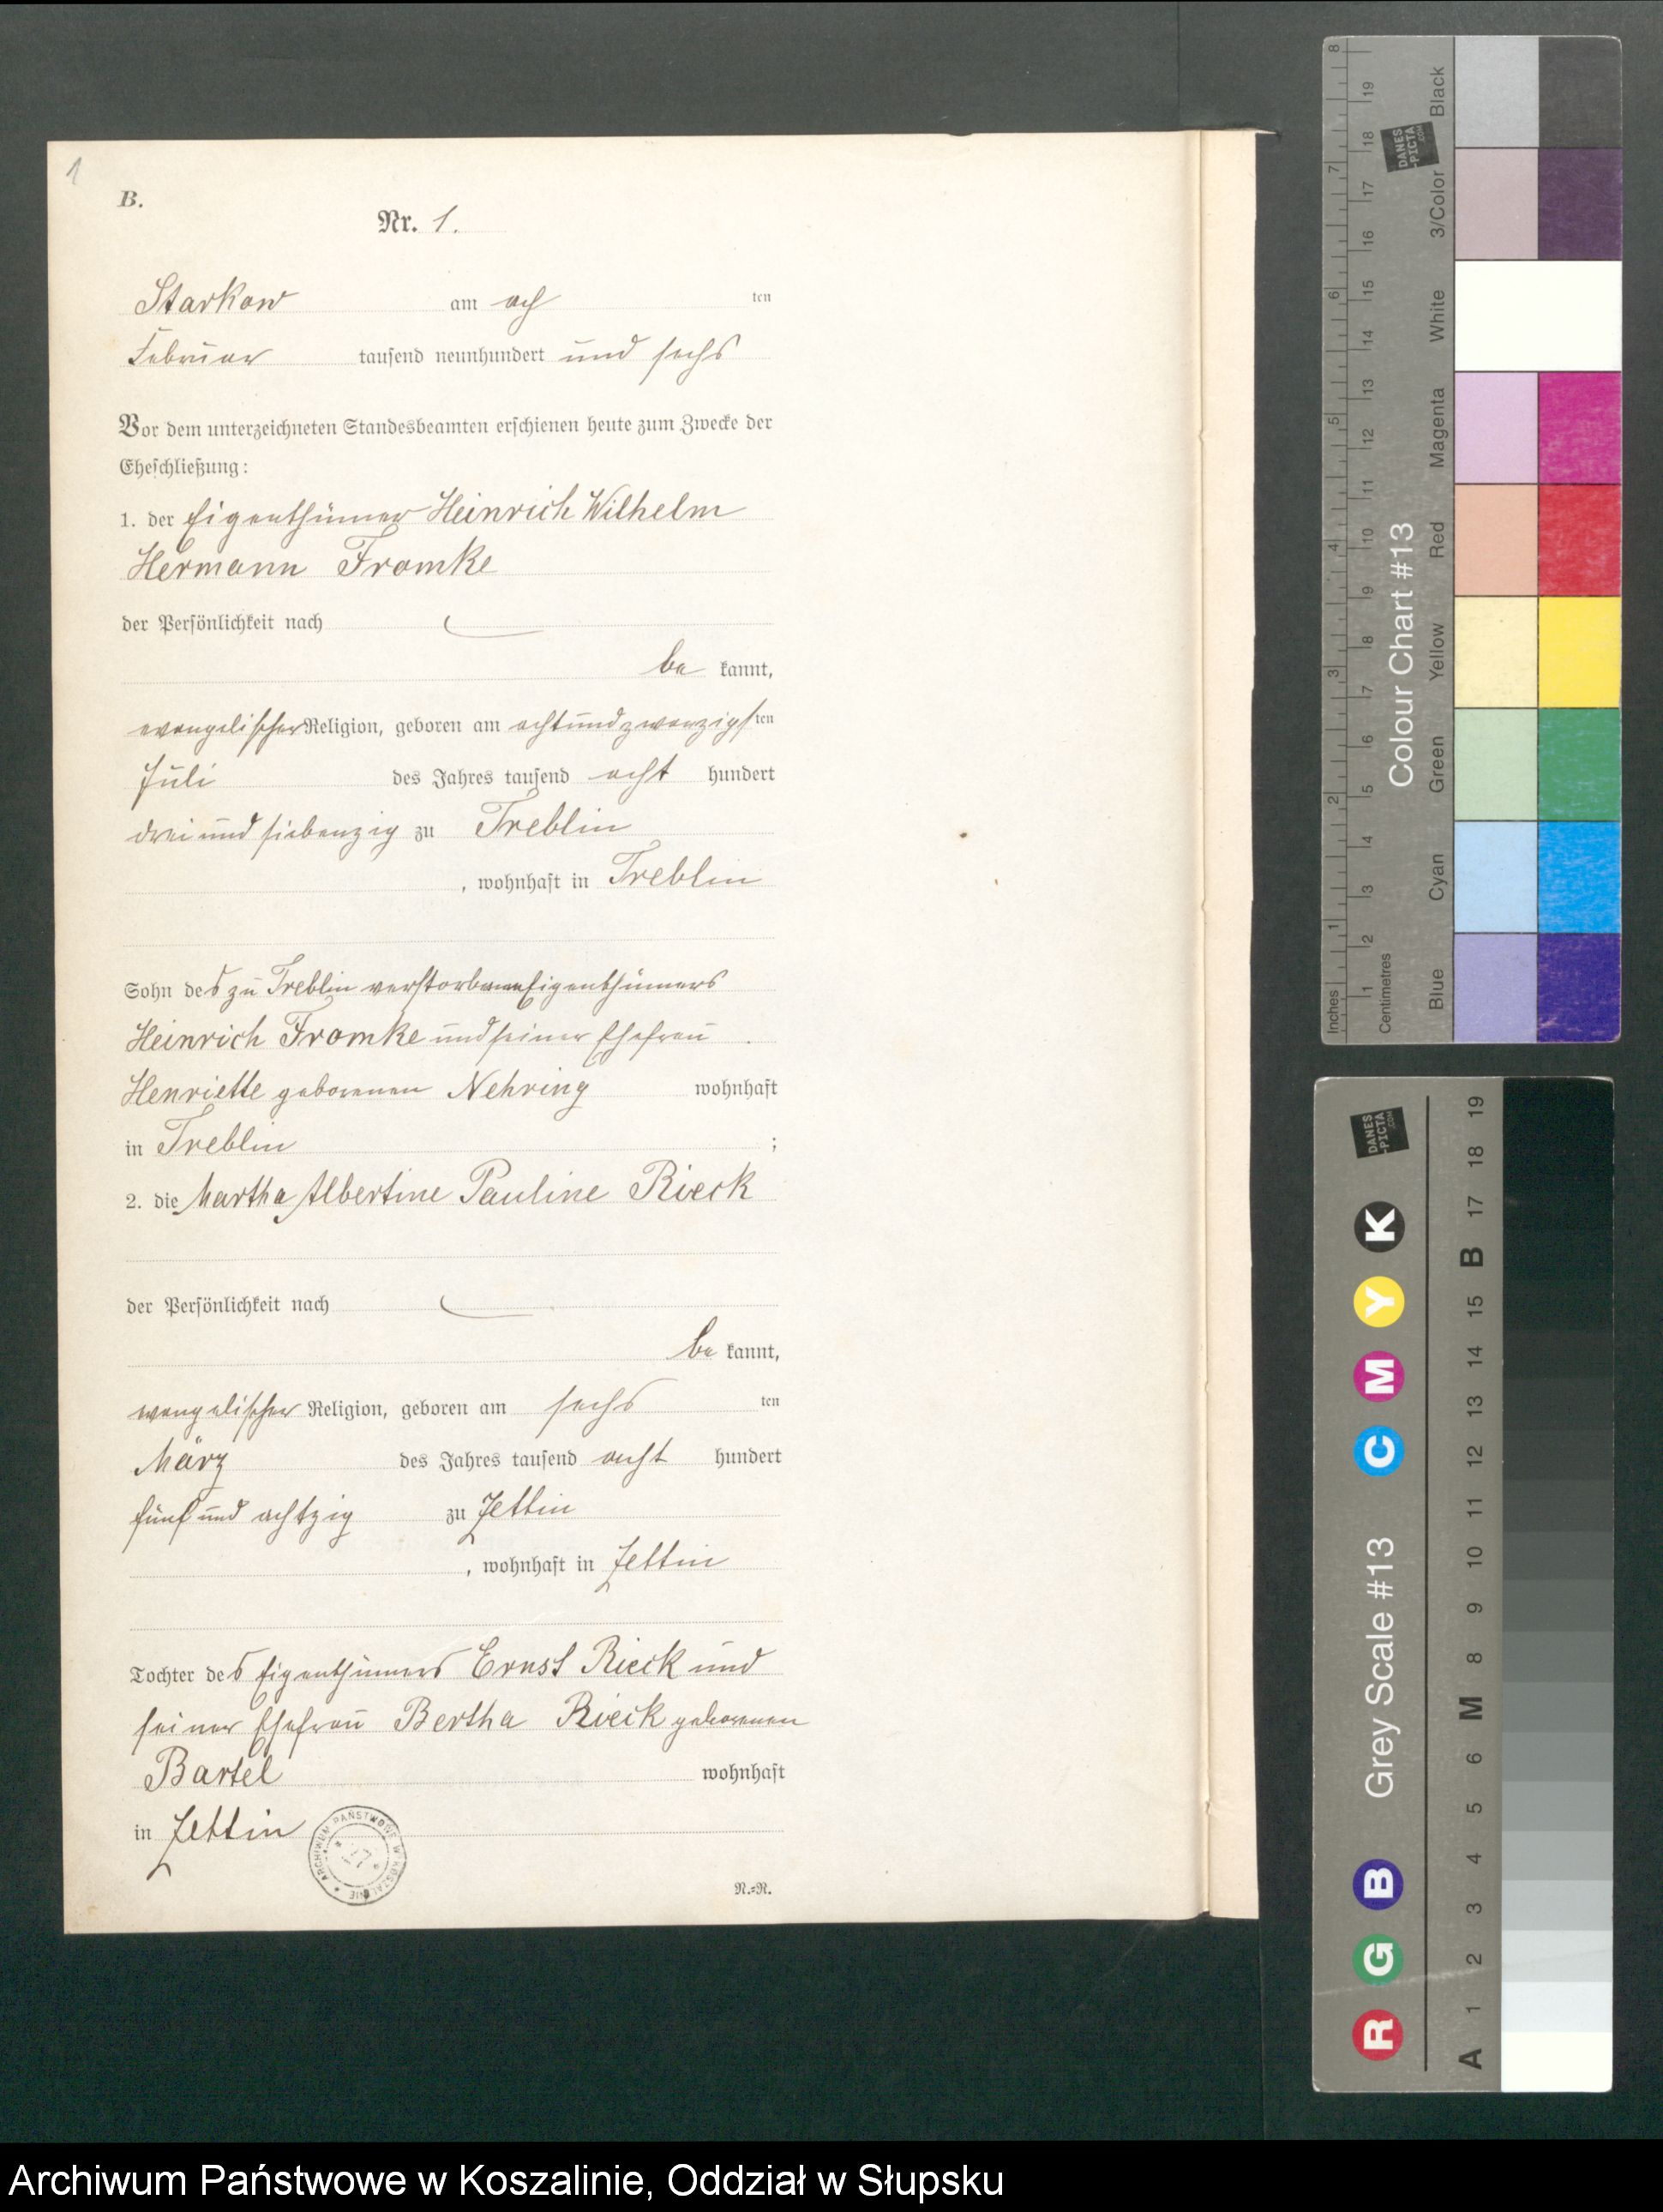 1
B.
Nr. 1.
Starkow am ach ten
Februar tausend neunhundert und sechs
Vor dem unterzeichneten Standesbeamten erschienen heute zum Zwecke der
Eheschließung:
1. der Eigenthümer Heinrich Wilhelm
Hermann Fromke
der Persönlichkeit nach
be kannt,
evangelischer Religion, geboren am achtundzwanzigsten
Juli des Jahres tausend acht hundert
drei und siebenzig zu Treblin
, wohnhaft in Treblin
Sohn des zu Treblin verstorbenen Eigenthümers
Heinrich Fromke und seiner Ehefrau
Henriette geborenen Nehring wohnhaft
in Treblin ;
2. die Martha Albertine Pauline Rieck
der Persönlichkeit nach
be kannt,
evangelischer Religion, geboren am sechs ten
März des Jahres tausend acht hundert
fünf und achtzig zu Zettin
, wohnhaft in Zettin
Tochter des Eigenthümers Ernst Rieck und
seiner Ehefrau Bertha Rieck geborenen
Bartel wohnhaft
in Zettin
ARCHIWUM PAŃSTWOWE W KOSZALINIE
N.=R.
Inches 1 2 3 4 5 6 7 8
Centimetres 1 2 3 4 5 6 7 8 9 10 11 12 13 14 15 16 17 18 19
Colour Chart #13
Blue Cyan Green Yellow Red Magenta White 3/Color Black
DANES
-PICTA
.COM
Grey Scale #13
R G B C M Y K
A 1 2 3 4 5 6 M 8 9 10 11 12 13 14 15 B 17 18 19
DANES
-PICTA
.COM
Archiwum Państwowe w Koszalinie, Oddział w Słupsku